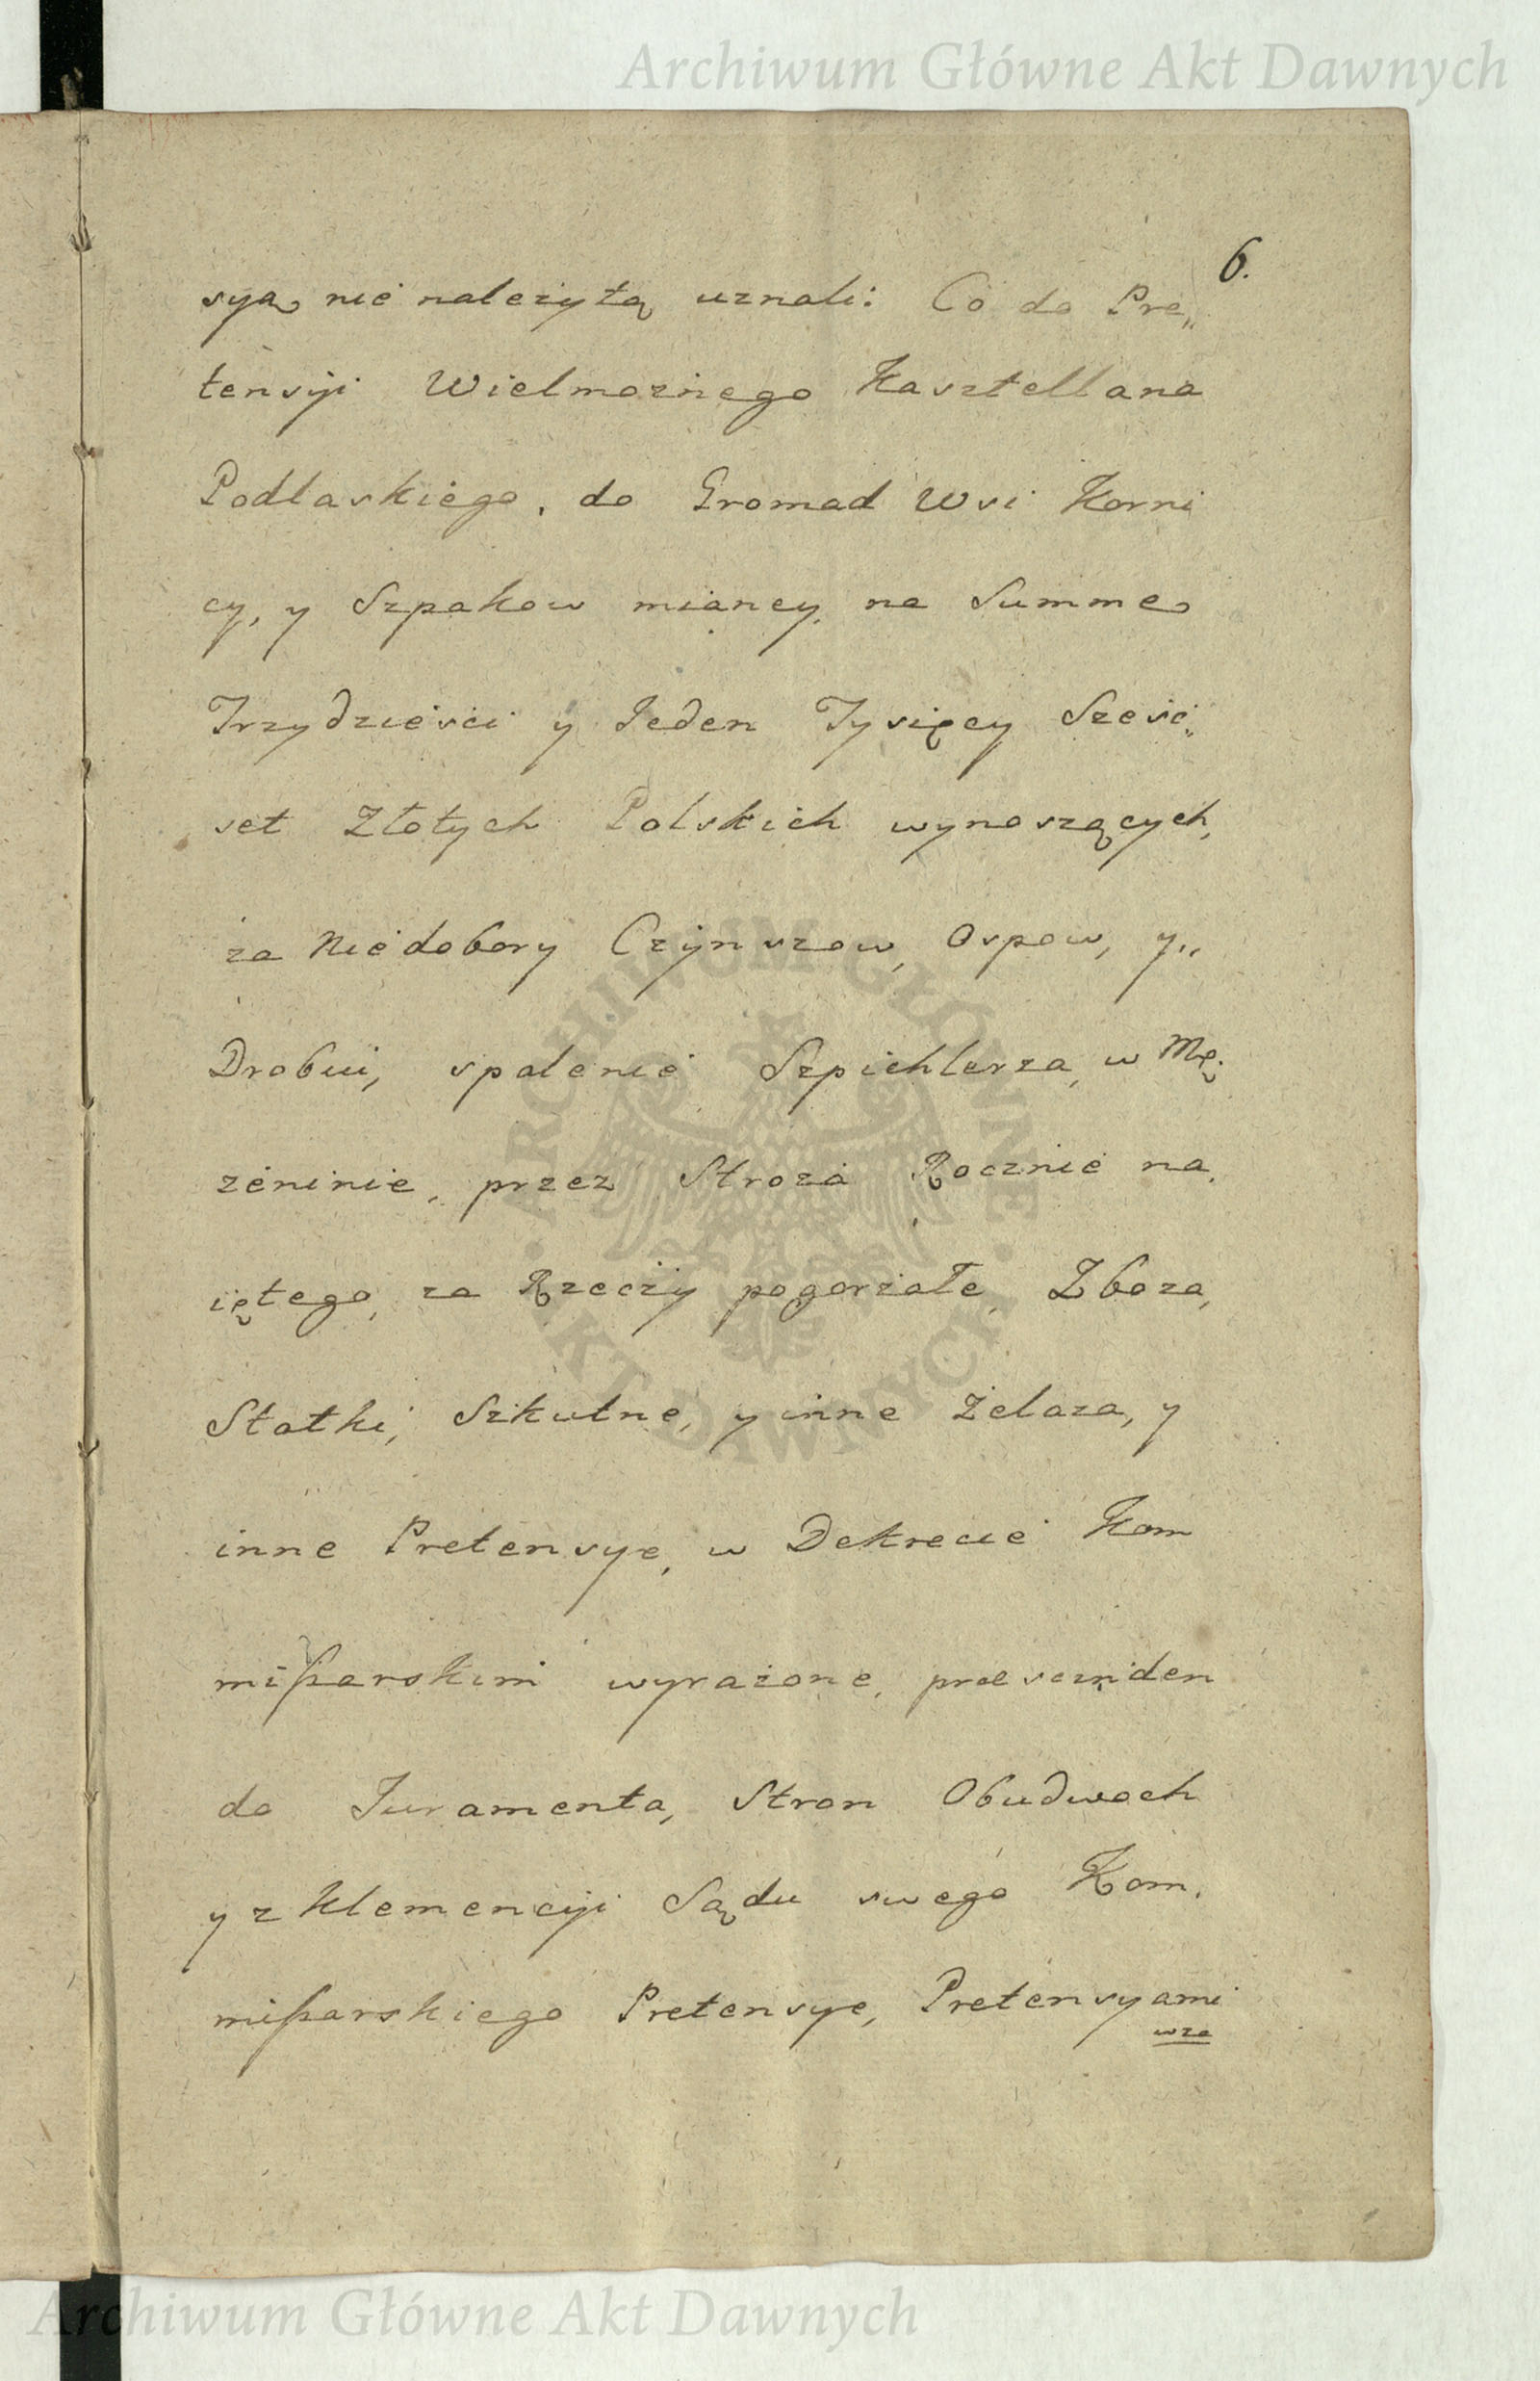 Archiwum Główne Akt Dawnych
6.
syą nie należytą uznali: Co do Pre„
tensyi Wielmożnego Kasztellana
Podlaskiego, do Gromad Wsi Korni
cy, y Szpakow mianey, na Summę
Trzydzieści y Jeden Tysięcy Sześć„
set Złotych Polskich wynoszących,
za Niedobory Czynszow, Ospow, y„
Drobiu, spalenie Szpichlerza, w Mę„
żeninie, przez Stroża Rocznie na„
iętego, za Rzeczy pogorzałe, Zboza,
Statki, Szkutne, y inne Żelaza, y
inne Pretensye, w Dekrecie Kom
mißarskim wyrażone, praesciniden
do Juramenta, Stron Obudwoch
y z Klemencyi Sądu swego Kom„
mißarskiego Pretensye, Pretensyami
wza
ARCHIWUM GŁÓWNE AKT DAWNYCH
Archiwum Główne Akt Dawnych